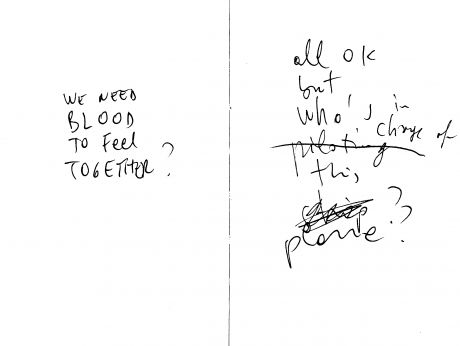 WE NEED
BLOOD
TO FEEL
TOGETHER?
all OK
but
who's in
charge of
piloting
this
ship
plane??